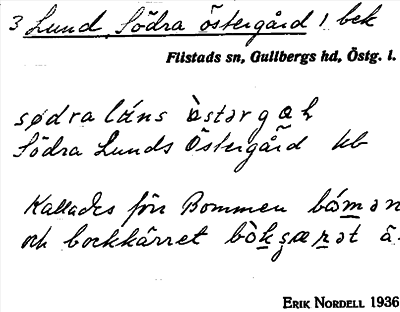 3 Lund, Södra Östergård 1 bek
Flistads sn, Gullbergs hd, Östg. l.
sødra láns östərgæɦ
Södra Lunds Östergård kb
Kallades förr Bommen bómən
och bockkärret bòkʂæṟət ä.
ERIK NORDELL 1936